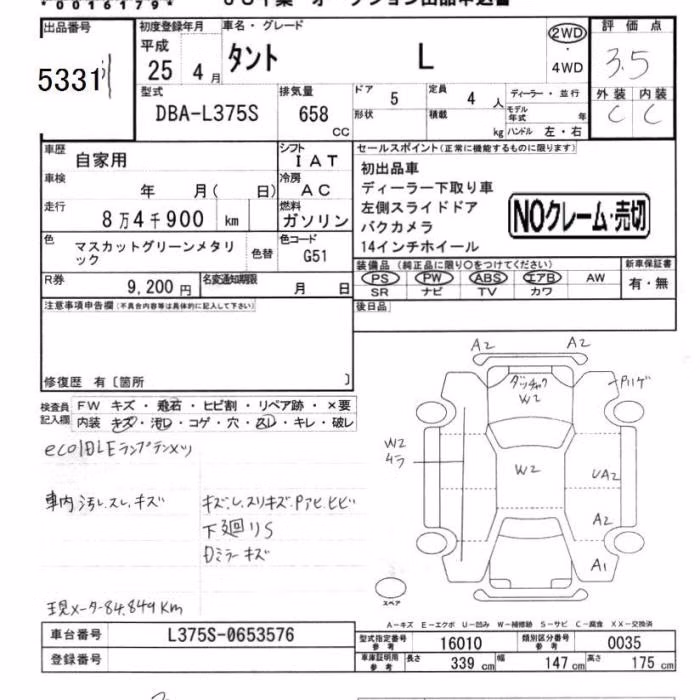 *0016179*
出品番号
5331
初度登録年月
平成
25 年 4 月
車名・グレード
タント L
2WD
・
4WD
評価点
3.5
外装 内装
C C
型式
DBA-L375S
排気量
658 CC
ドア 5
形状
定員 4 人
積載 kg
ディーラー・並行
モデル年式 年
ハンドル 左・右
車歴
自家用
シフト
IAT
車検
年 月( 日)
冷房
AC
走行
8万4千900 km
燃料
ガソリン
色
マスカットグリーンメタリック
色替
色コード
G51
R券
9,200円
名変通知期限
月 日
セールスポイント(正常に機能するものに限ります)
初出品車
ディーラー下取り車
左側スライドドア
バクカメラ
14インチホイール
NOクレーム・売切
装備品 (純正品に限り○をつけてください)
PS PW ABS エアB AW
SR ナビ TV カワ
新車保証書
有・無
後日品
注意事項申告欄(不具合内容等は具体的に記入して下さい)
修復歴 有〔箇所 〕
検査員記入欄
FW キズ・飛石・ヒビ割・リペア跡・×要
内装 キズ・汚レ・コゲ・穴・スレ・キレ・破レ
eco IDLEランプテンメツ
車内汚レ.スレ.キズ
下廻リS
Dミラーキズ
現メーター84,849Km
A2 A2
W2
W2
W2
UA2
A2
A1
スペア
A-キズ E-エクボ U-凹み W-補修跡 S-サビ C-腐食 XX-交換済
車台番号 L375S-0653576
登録番号
型式指定番号 参考 16010
類別区分番号 参考 0035
車庫証明用 参考 長さ 339 cm 幅 147 cm 高さ 175 cm